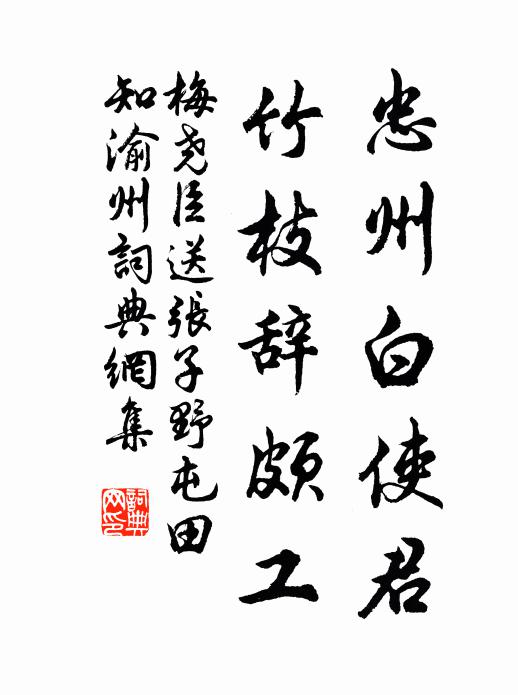 忠州白使君
竹枝辞頗工
梅堯臣送張子野屯田
知渝州詞典網集
詞典网印